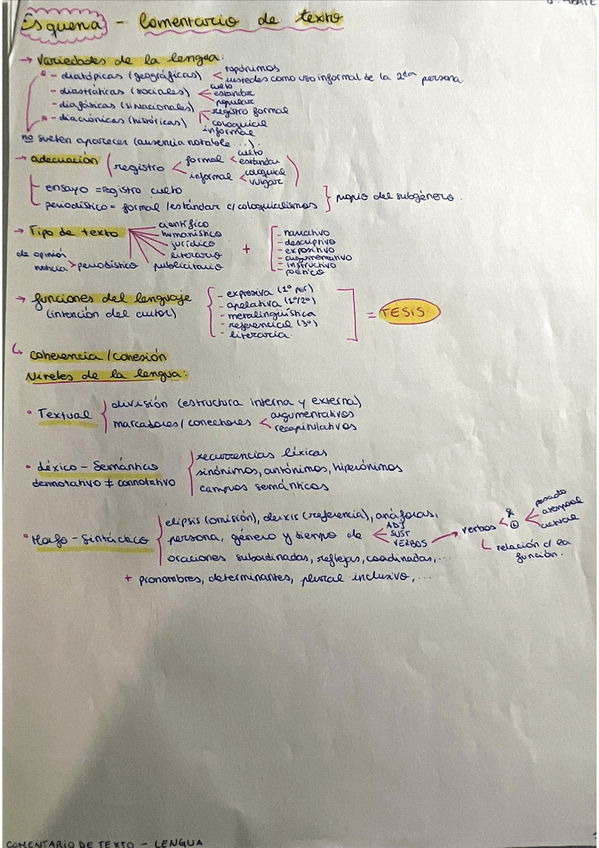 Esquema - Comentario de texto
→ Variedades de la lengua:
- diatópicas (geográficas) < topónimos
ustedes como uso informal de la 2da persona.
- diastráticas (sociales) < culto
estándar
popular
- diafásicas (situacionales)
registro formal
coloquial
informal
- diacrónicas (históricas)
no suelen aparecer (ausencia notable ...)
→ adecuación (registro < formal < culto
estándar
informal < coloquial
vulgar )
ensayo = registro culto
periodístico = formal / estándar c/ coloquialismos } propio del subgénero.
→ Tipo de texto
científico
humanístico
jurídico
literario
publicitario
de opinión
noticia > periodístico
+
- narrativo
- descriptivo
- expositivo
- argumentativo
- instructivo
- poético
→ funciones del lenguaje
(intención del autor)
- expresiva (1ª per)
- apelativa (1ª/2ª)
- metalingüística
- referencial (3ª)
- literaria
= TESIS
↳ coherencia / cohesión
Niveles de la lengua:
• Textual { división (estructura interna y externa)
marcadores / conectores < argumentativos
recapitulativos
• Léxico - Semántico
denotativo ≠ connotativo
recurrencias léxicas
sinónimos, antónimos, hiperónimos
campos semánticos
• Morfo - Sintáctico
elipsis (omisión), deixis (referencia), anáforas,
persona, género y tiempo de < ADJ
SUST
VERBOS → verbos <
pasado
atemporal
actual
↳ relación c/ la función.
oraciones subordinadas, reflejas, coordinadas, ...
+ pronombres, determinantes, plural inclusivo, ...
COMENTARIO DE TEXTO - LENGUA